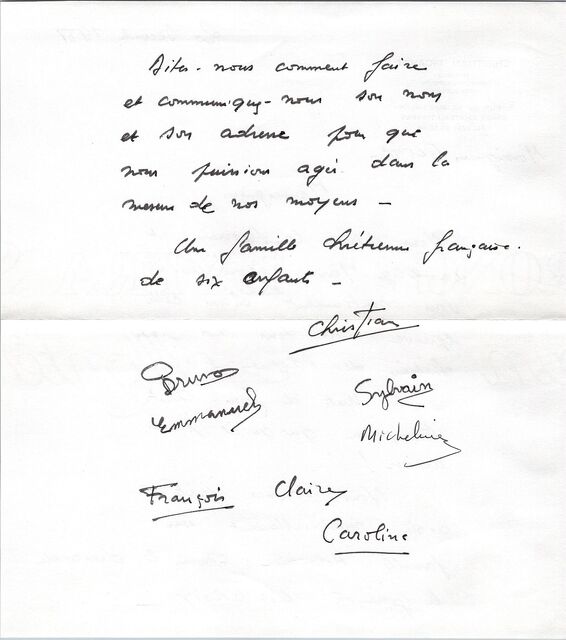 Dites-nous comment faire
et communiquez-nous son nom
et son adresse pour que
nous puissions agir dans la
mesure de nos moyens -
Une famille chrétienne française.
de six enfants -
Christian
Bruno
Sylvain
Emmanuel
Micheline
François Claire
Caroline